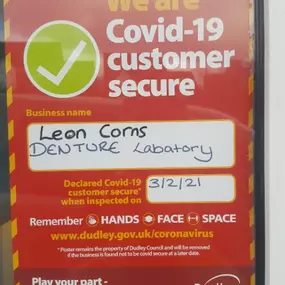 We are
Covid-19
customer
secure
Business name
Leon Corns
DENTURE Labatory
Declared Covid-19
customer secure*
when inspected on
3/2/21
Remember HANDS FACE SPACE
www.dudley.gov.uk/coronavirus
*Poster remains the property of Dudley Council and will be removed
if the business is found not to be covid secure at a later date.
Play your part -